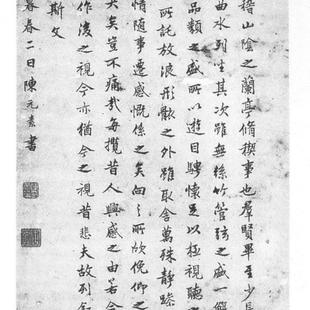 稽山陰之蘭亭脩禊事也羣賢畢至少長
曲水列坐其次雖無絲竹管弦之盛一觴
品類之盛所以遊目騁懷足以極視聽之
所託放浪形骸之外雖取舍萬殊靜躁
情隨事遷感慨係之矣向之所欣俛仰之
大矣豈不痛哉每攬昔人興感之由若合
作後之視今亦猶今之視昔悲夫故列敘
斯文
暮春二日陳元素書